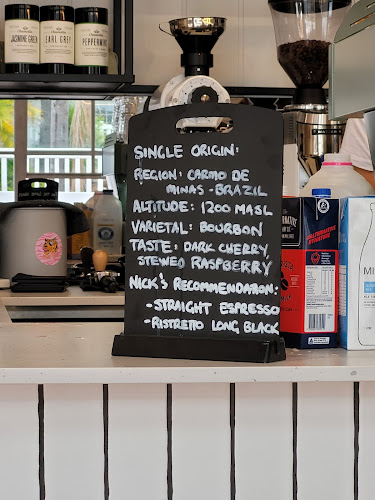 JASMINE GREEN
EARL GREY
PEPPERMINT
SINGLE ORIGIN:
REGION: CARMO DE
MINAS - BRAZIL
ALTITUDE: 1200 MASL
VARIETAL: BOURBON
TASTE: DARK CHERRY,
STEWED RASPBERRY
NICK'S RECOMMENDATION:
- STRAIGHT ESPRESSO
- RISTRETTO LONG BLACK